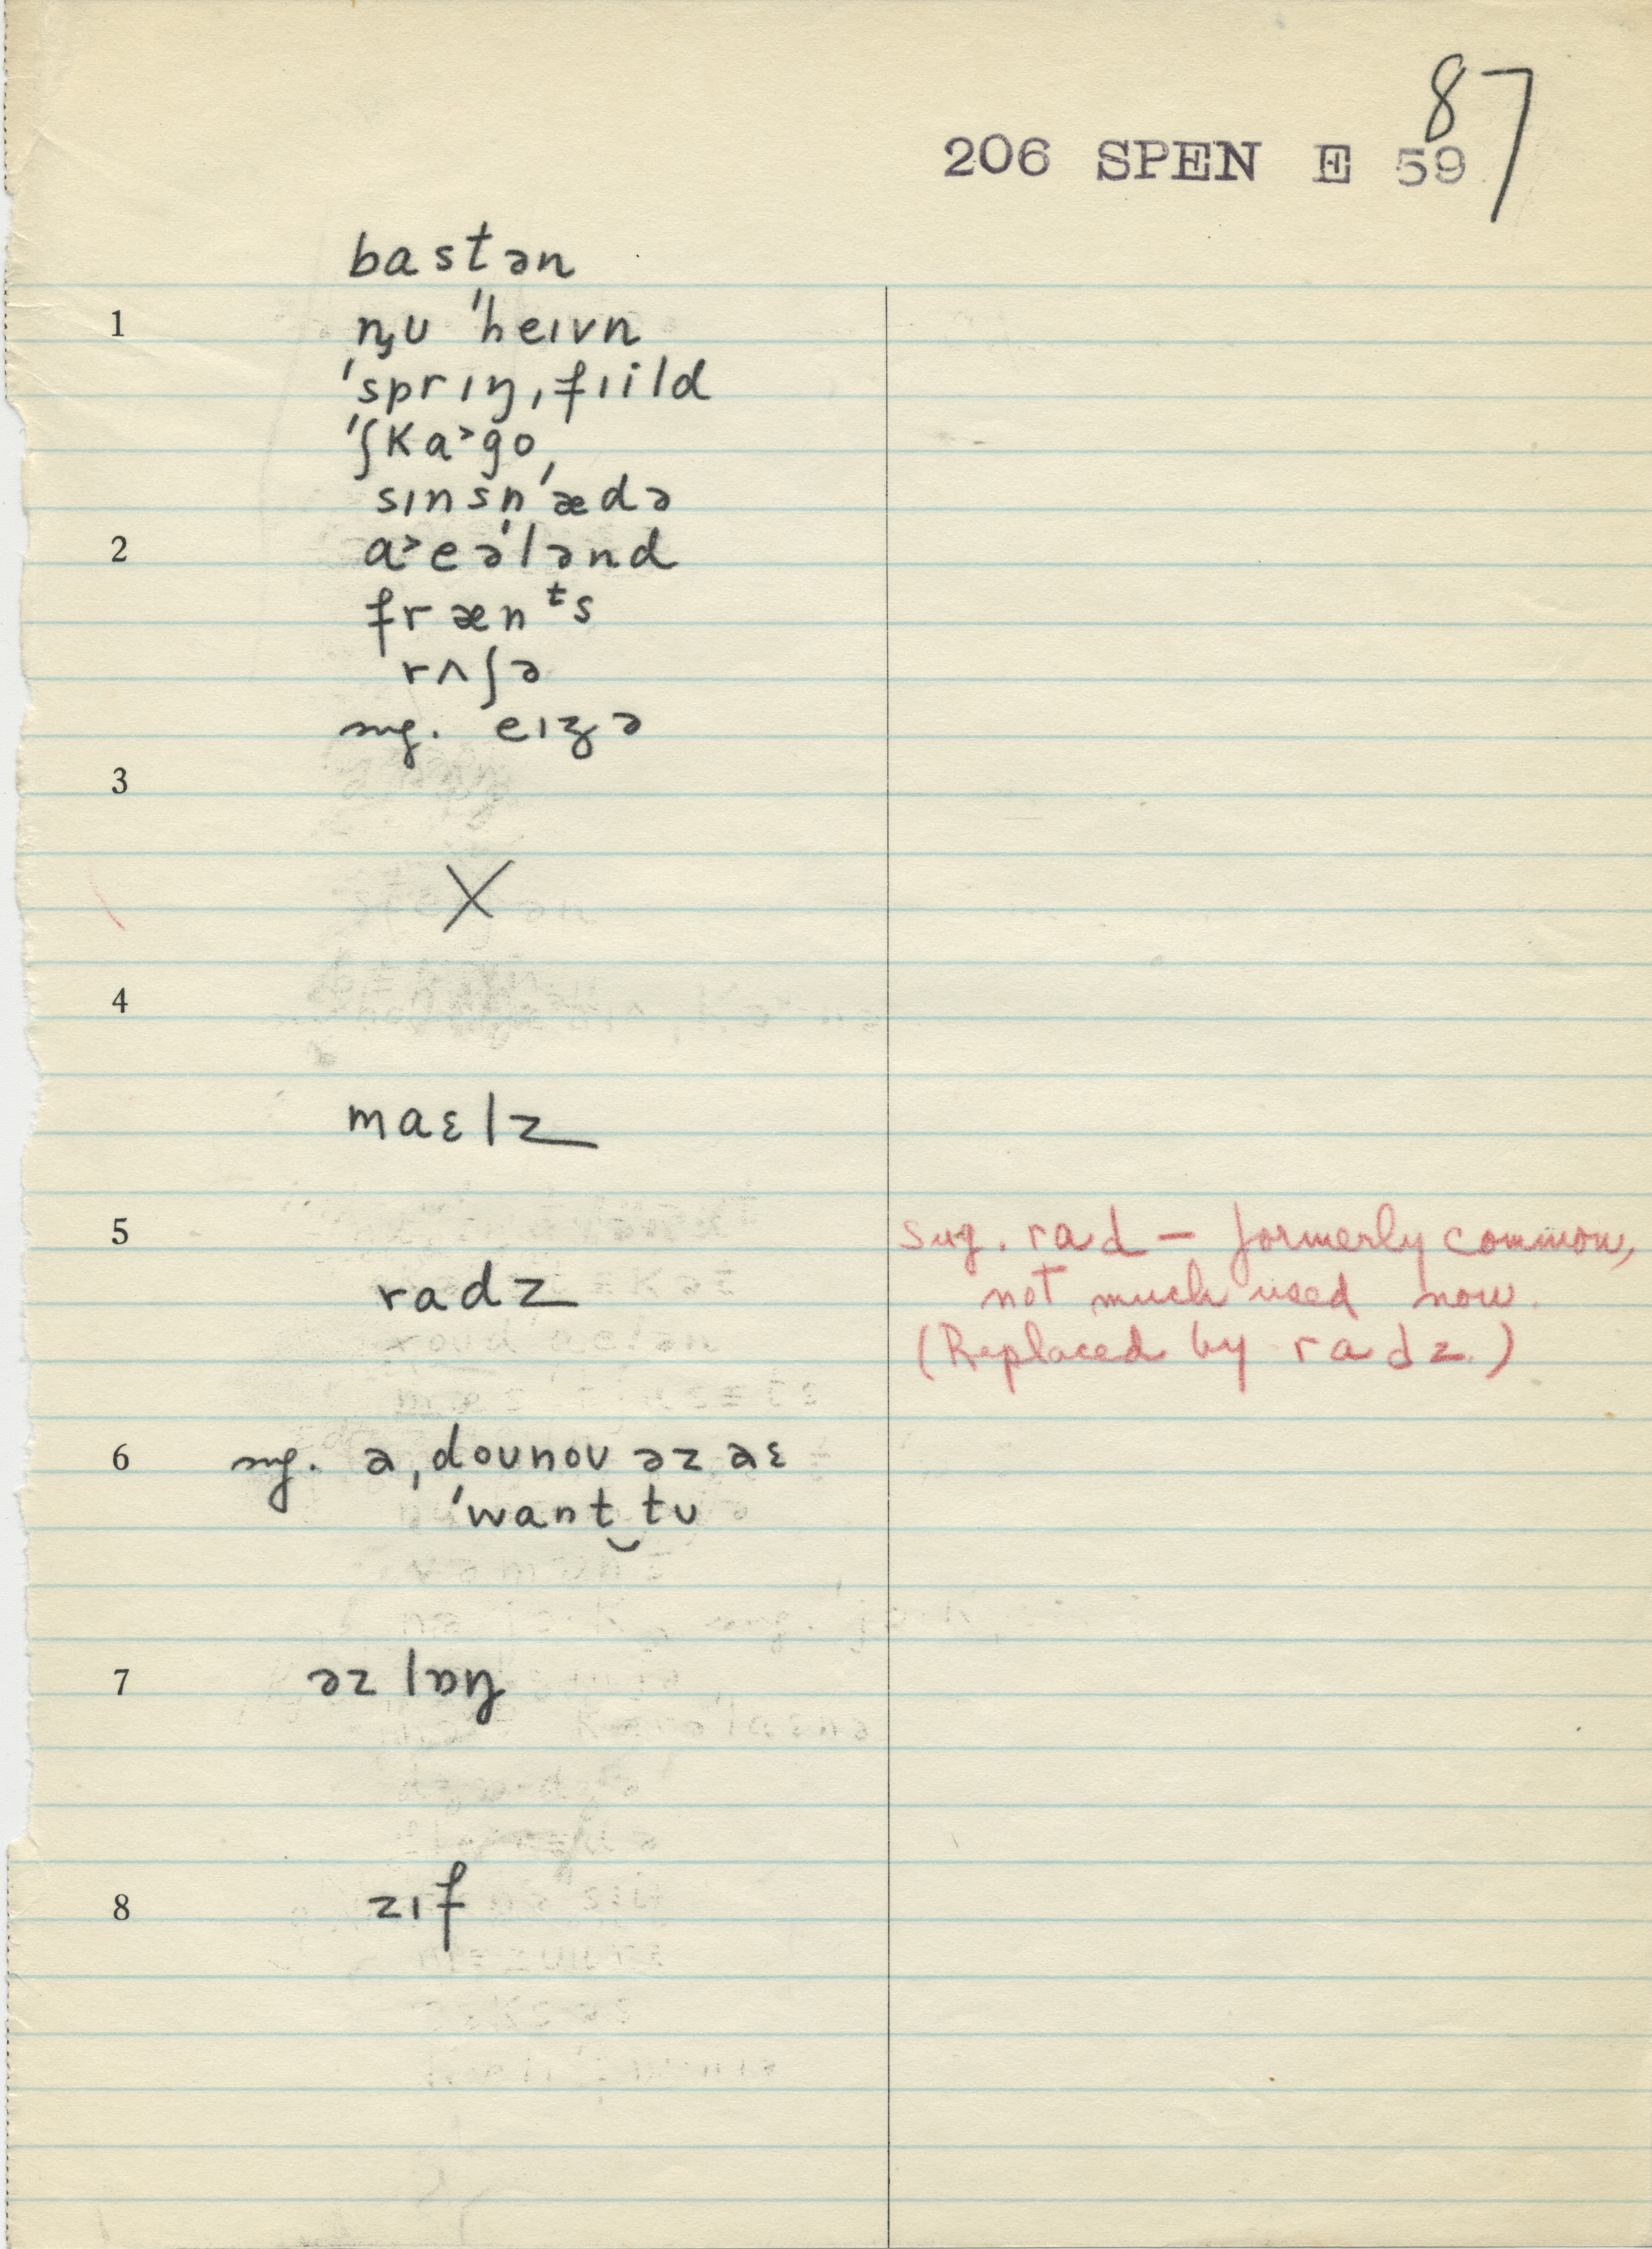 87
206 SPEN E 59
bastən
1 n̡ʊ ˈheɪvn
ˈsprɪŋˌfɪild
ˈʃka˃go
sɪnsn̩ˈædə
2 a˃eəˈlənd
frænᵗs
rʌʃə
sug. eɪʒə
3
X
4
maɛlz
5 sug. rad — formerly common,
radz not much used now.
(Replaced by radz.)
6 sug. əˌdoʊnoʊ əz aɛ
ˈwant‿tʊ
7 əz lɒŋ
8 zɪf